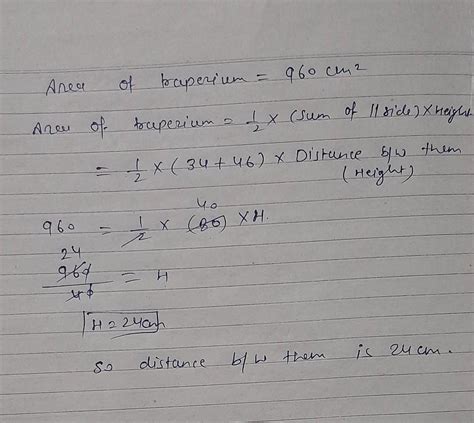 Area of trapezium = 960 cm²
Area of trapezium = 1/2 × (sum of 11 side) × Height
= 1/2 × (34 + 46) × Distance b/w them
(Height)
40
960 = 1/2 × (80) × H.
24
960/40 = H
H = 24cm
so distance b/w them is 24 cm.